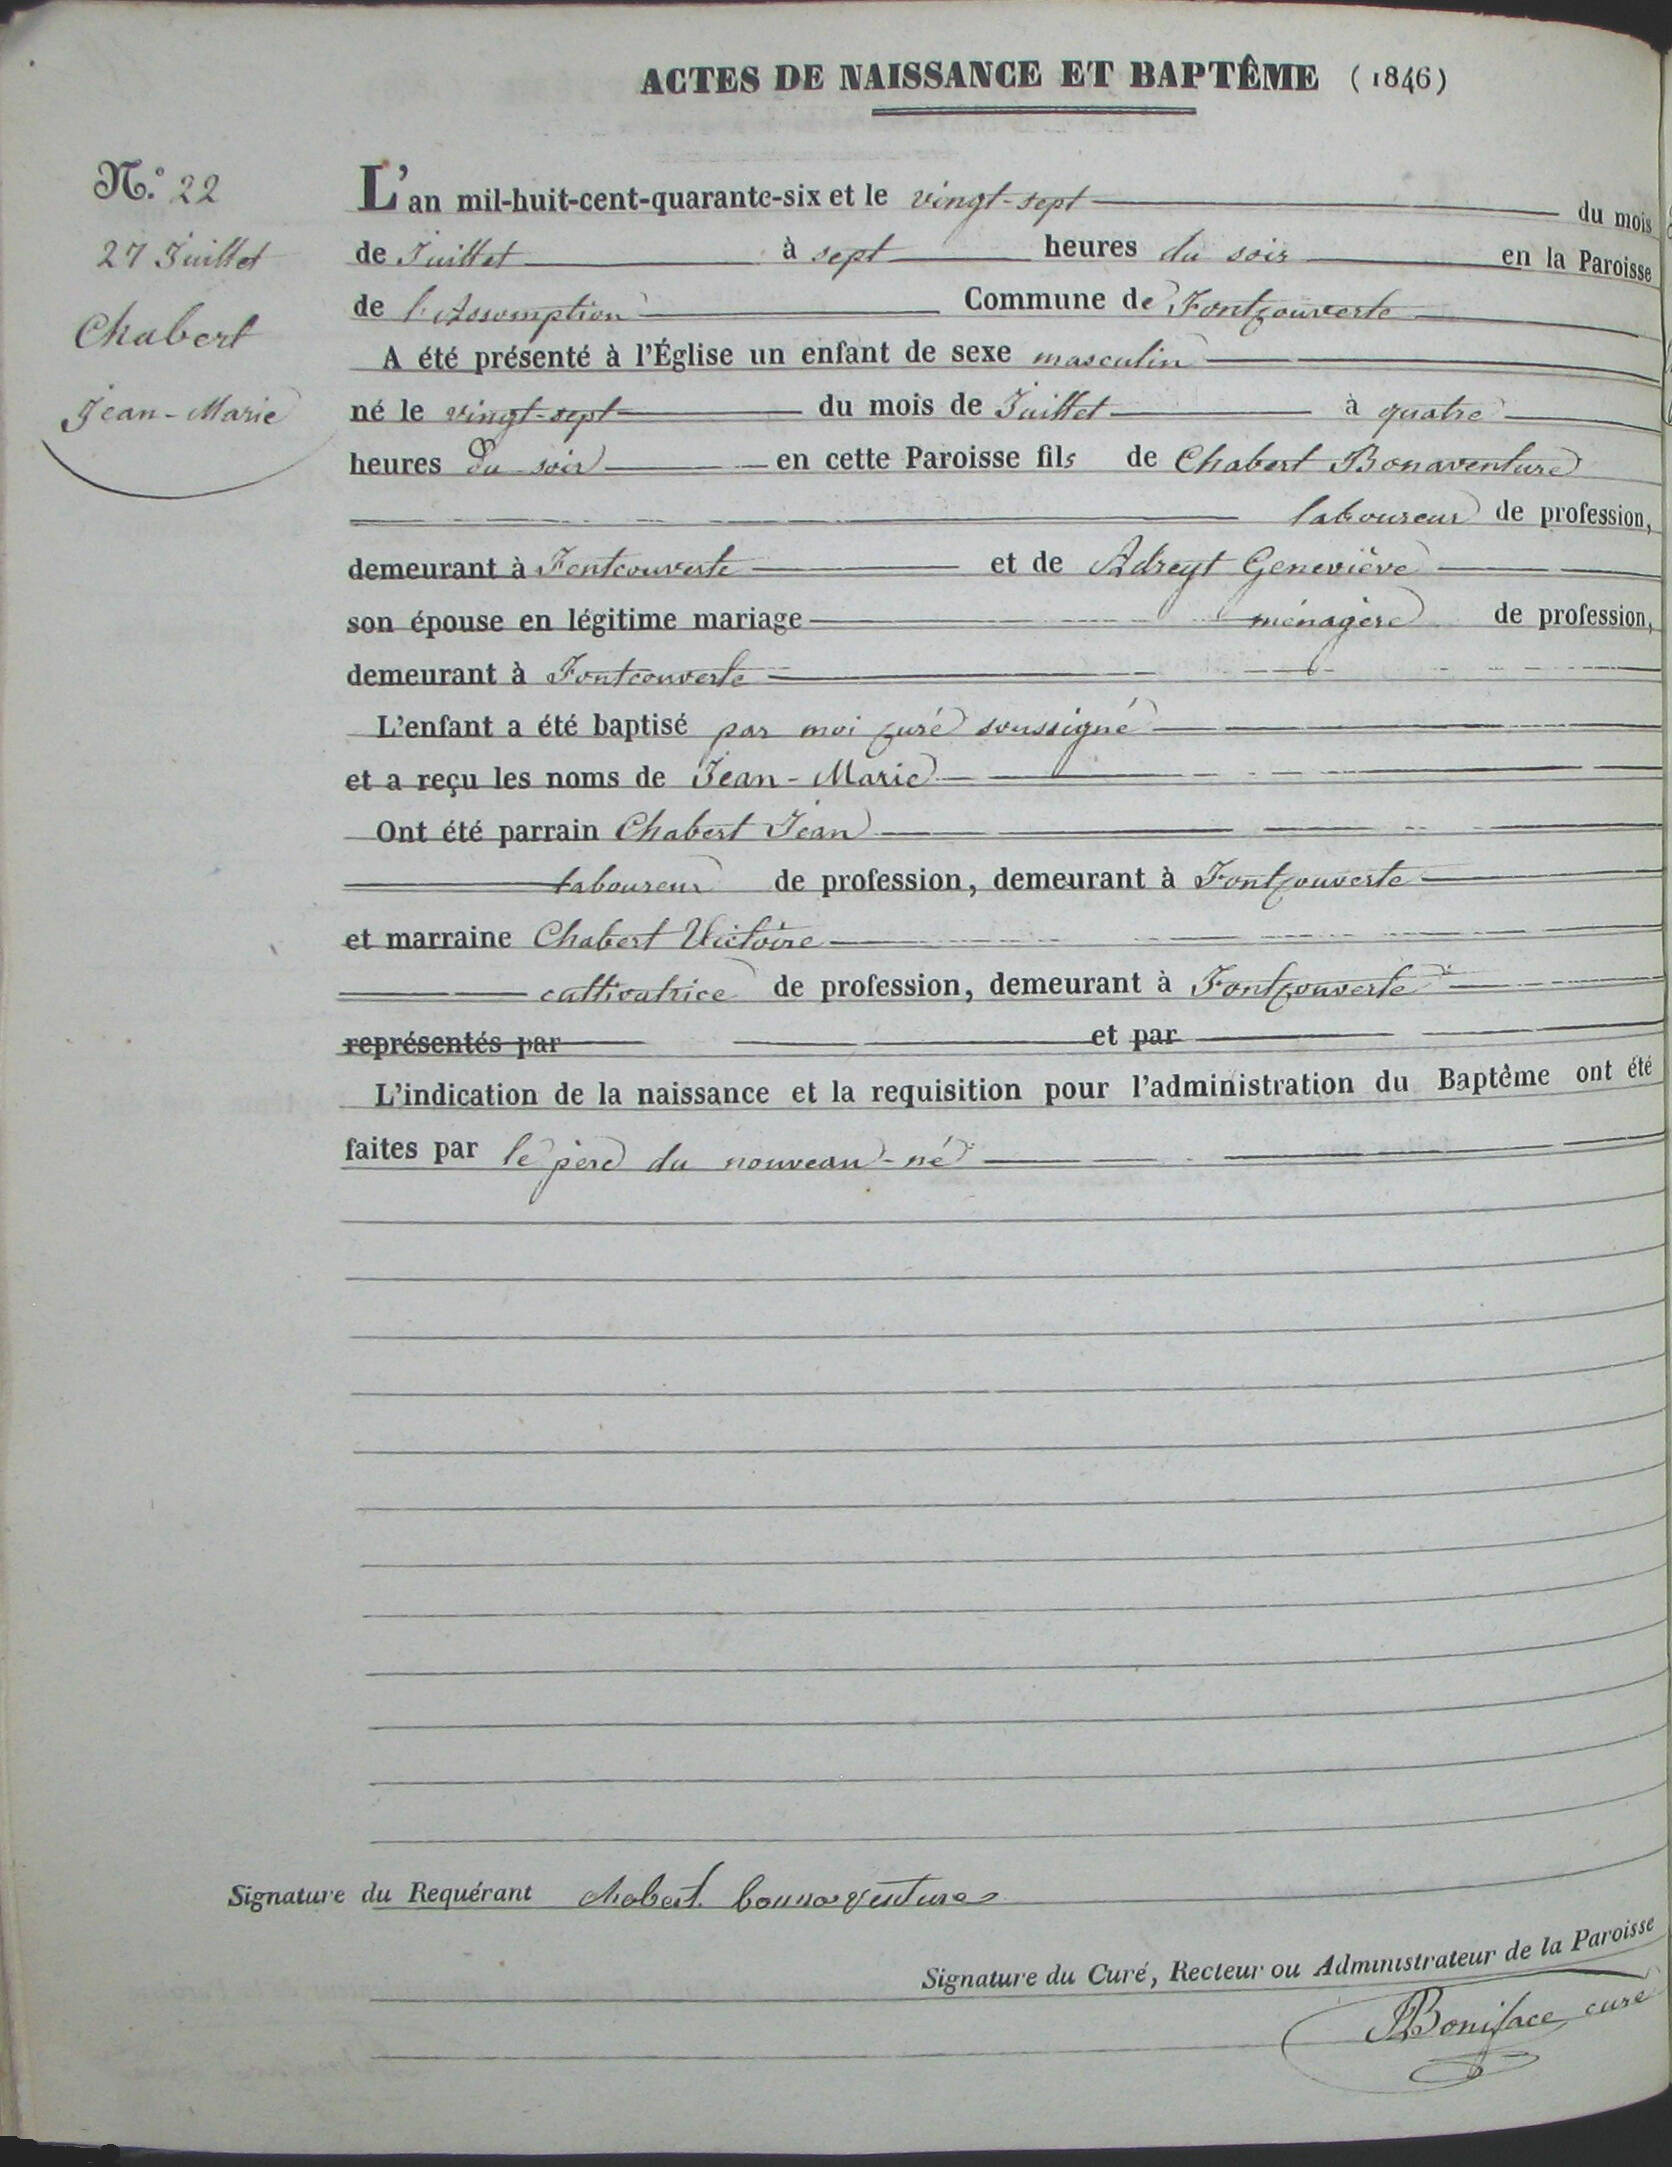 ACTES DE NAISSANCE ET BAPTÊME (1846)
N.º 22
27 Juillet
Chabert
Jean-Marie
L'an mil-huit-cent-quarante-six et le vingt-sept du mois
de Juillet à sept heures du soir en la Paroisse
de l'Assomption Commune de Fontcouverte
A été présenté à l'Église un enfant de sexe masculin
né le vingt-sept du mois de Juillet à quatre
heures du soir en cette Paroisse fils de Chabert Bonaventure
laboureur de profession,
demeurant à Fontcouverte et de Adreyt Geneviève
son épouse en légitime mariage ménagère de profession,
demeurant à Fontcouverte
L'enfant a été baptisé par moi curé soussigné
et a reçu les noms de Jean-Marie
Ont été parrain Chabert Jean
laboureur de profession, demeurant à Fontcouverte
et marraine Chabert Victoire
cultivatrice de profession, demeurant à Fontcouverte
représentés par et par
L'indication de la naissance et la requisition pour l'administration du Baptême ont été
faites par le père du nouveau-né
Signature du Requérant chabert bonnaventure
Signature du Curé, Recteur ou Administrateur de la Paroisse
Boniface curé